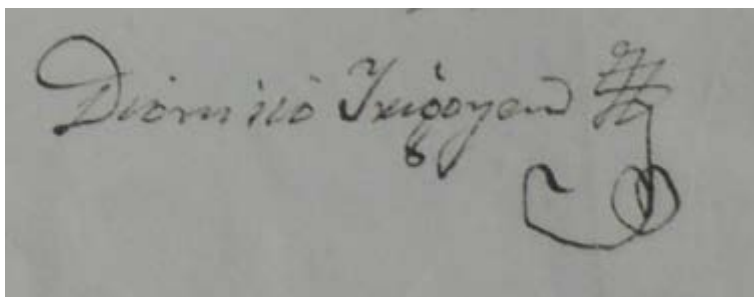 Dionisio Irigoyen